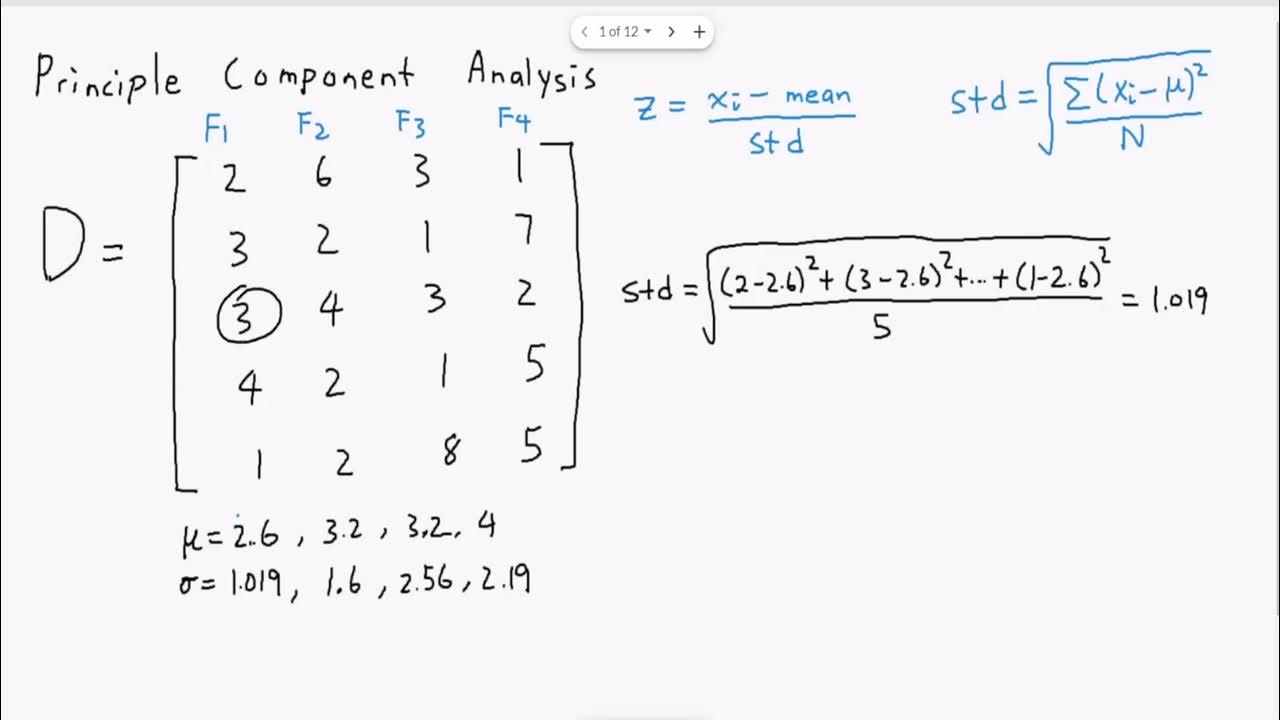 1 of 12
Principle Component Analysis
z = xi - mean / std
std = √(Σ(xi - μ)² / N)
F1 F2 F3 F4
D =
2 6 3 1
3 2 1 7
3 4 3 2
4 2 1 5
1 2 8 5
std = √((2-2.6)² + (3-2.6)² + ... + (1-2.6)² / 5) = 1.019
μ = 2.6 , 3.2 , 3.2, 4
σ = 1.019, 1.6 , 2.56 , 2.19